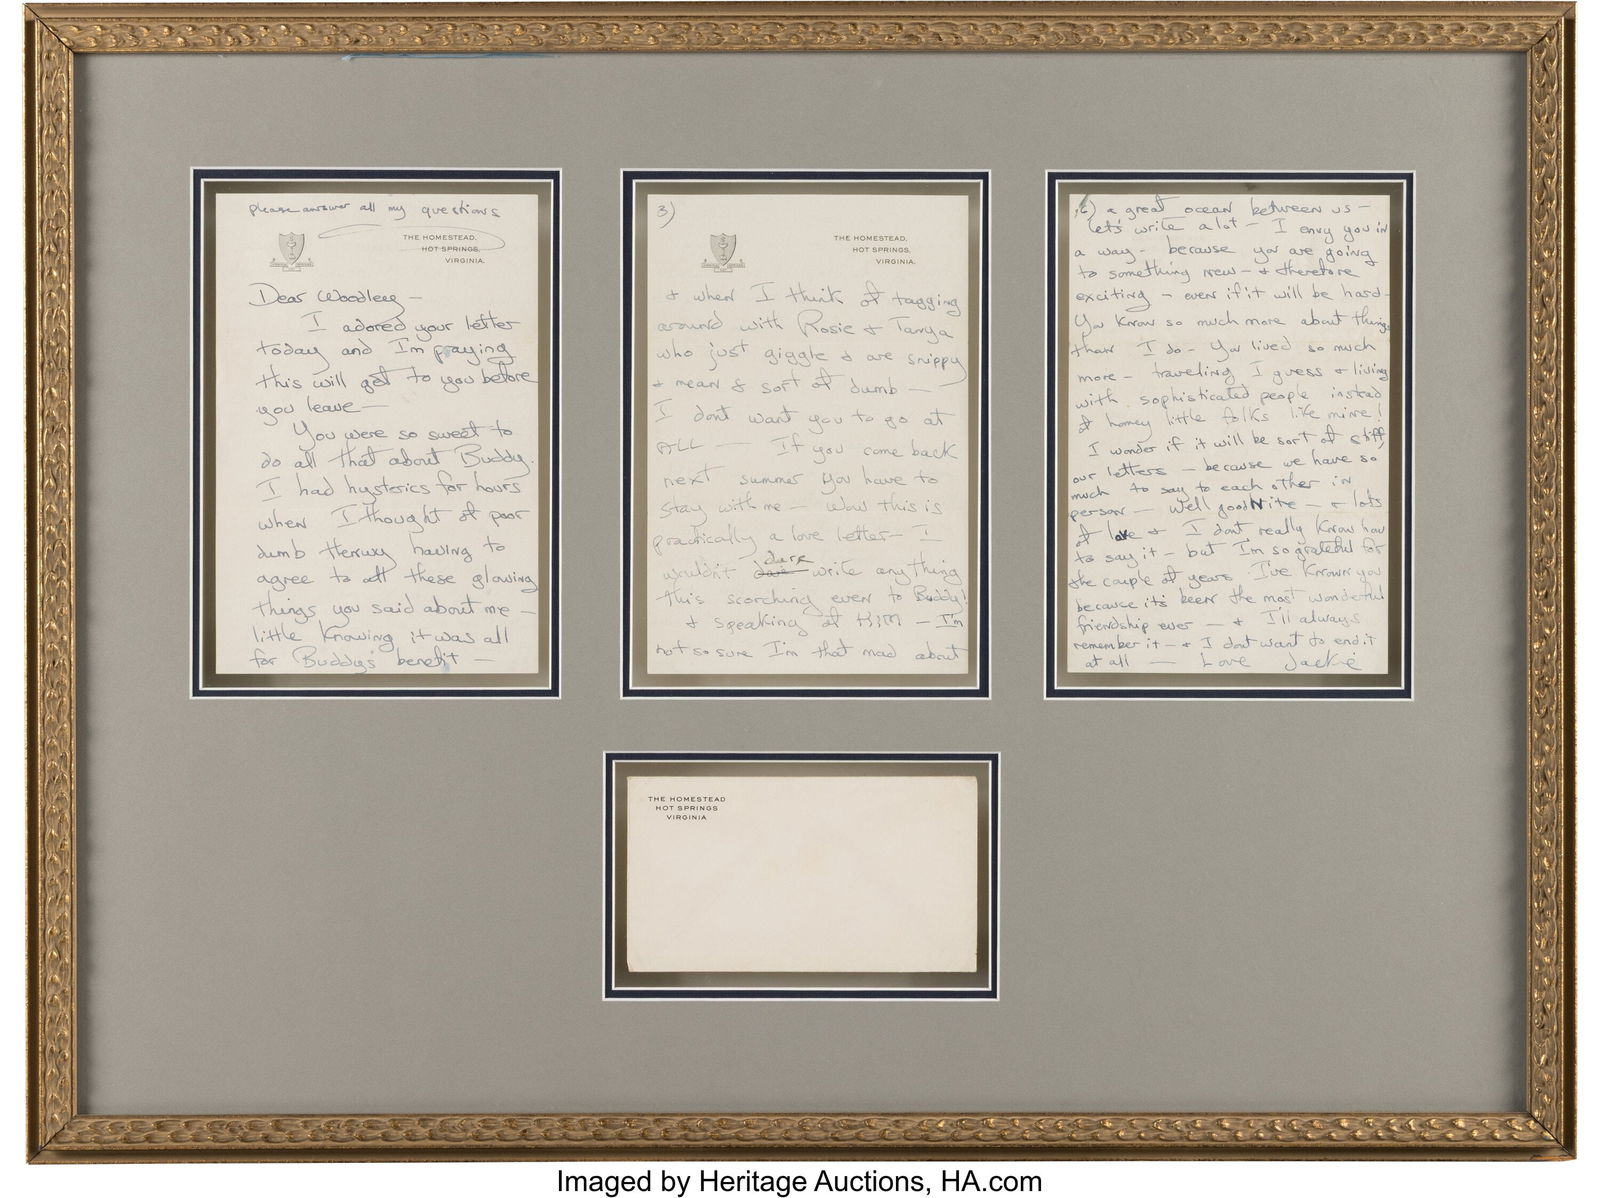 please answer all my questions
THE HOMESTEAD,
HOT SPRINGS,
VIRGINIA.
Dear Woodley —
I adored your letter
today and I'm praying
this will get to you before
you leave —
You were so sweet to
do all that about Buddy.
I had hysterics for hours
when I thought of poor
dumb having to
agree to all these glowing
things you said about me —
little knowing it was all
for Buddy's benefit —
3)
THE HOMESTEAD,
HOT SPRINGS,
VIRGINIA.
& when I think of tagging
around with Rosie & Tanya
who just giggle & are snippy
& mean & sort of dumb —
I dont want you to go at
ALL — If you come back
next summer you have to
stay with me — Wow this is
practically a love letter — I
wouldn't dare write anything
this scorching even to Buddy!
& speaking of HIM — I'm
not so sure I'm that mad about
6) a great ocean between us —
let's write a lot — I envy you in
a way — because you are going
to something new — & therefore
exciting — even if it will be hard —
You know so much more about things
than I do — You lived so much
more — traveling I guess & living
with sophisticated people instead
of homey little folks like mine!
I wonder if it will be sort of stiff
our letters — because we have so
much to say to each other in
person — Well goodNite — & lots
of love & I dont really know how
to say it — but I'm so grateful for
the couple of years I've known you
because its been the most wonderful
friendship ever — & I'll always
remember it — & I dont want to end it
at all — Love Jackie
THE HOMESTEAD
HOT SPRINGS
VIRGINIA
Imaged by Heritage Auctions, HA.com